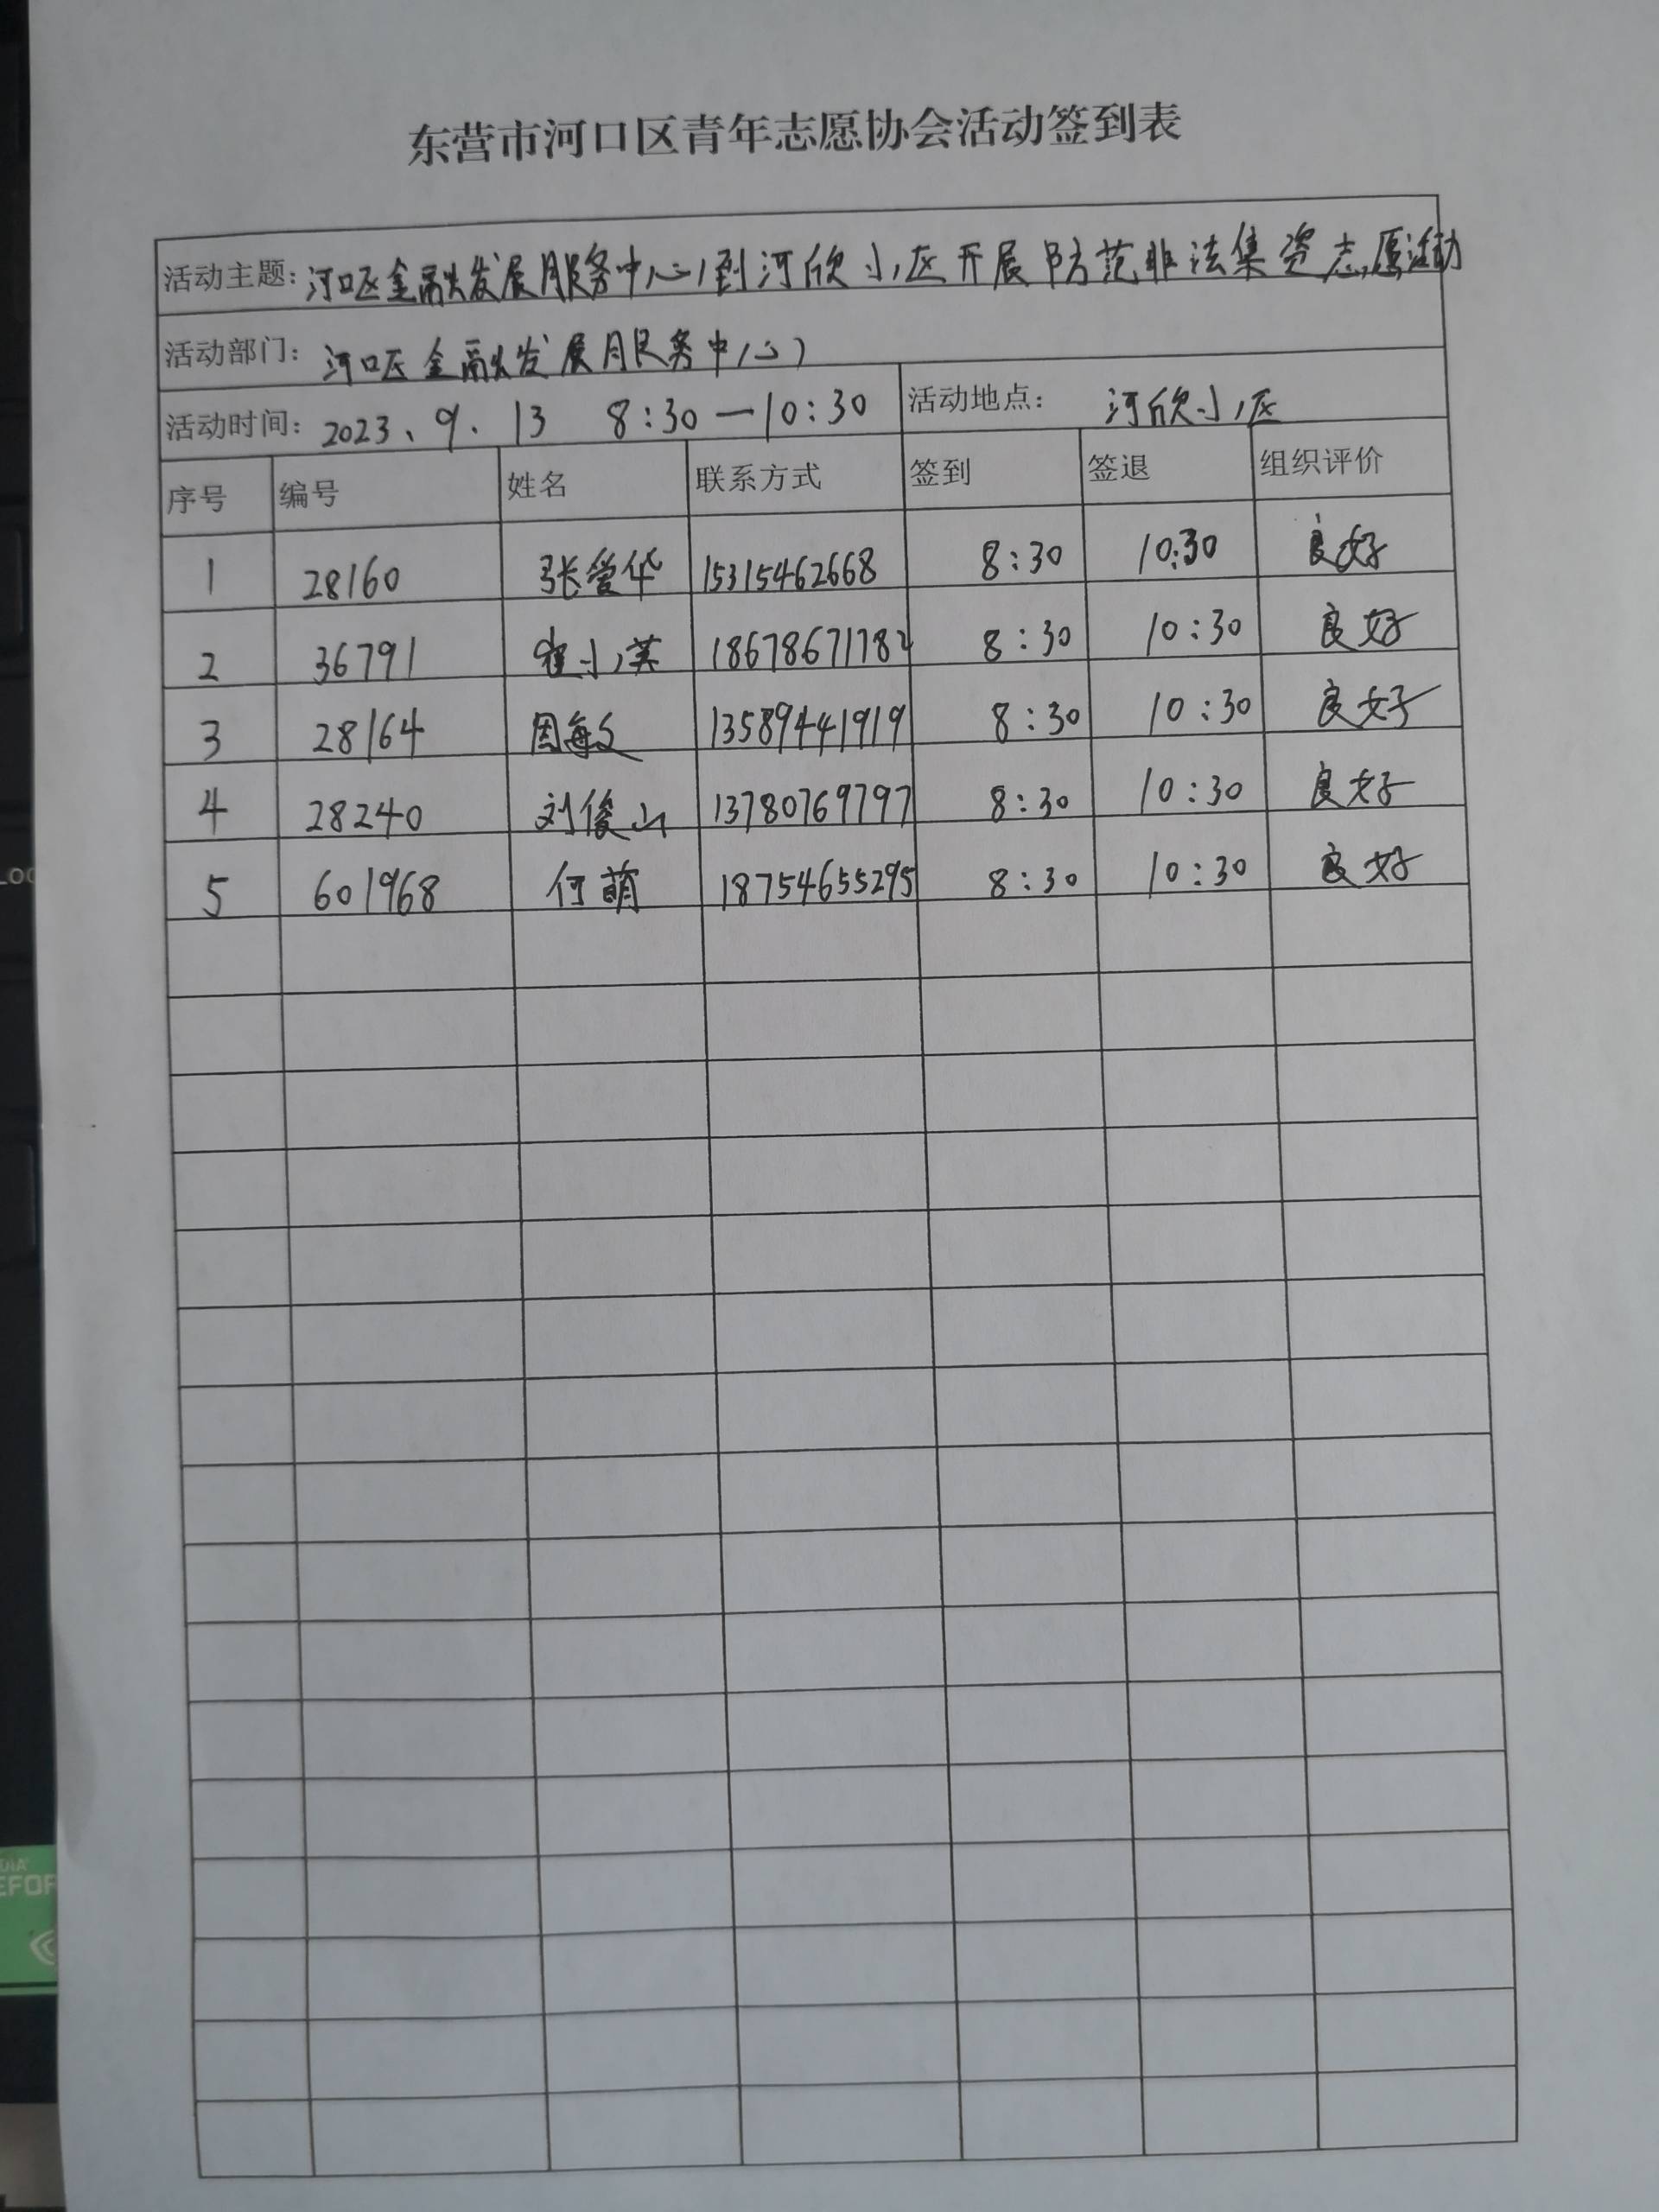 东营市河口区青年志愿协会活动签到表
活动主题: 河口区金融发展服务中心到河欣小区开展防范非法集资志愿活动
活动部门: 河口区金融发展服务中心
活动时间: 2023、9、13 8:30—10:30 活动地点: 河欣小区
序号 编号 姓名 联系方式 签到 签退 组织评价
1 28160 张爱华 15315462668 8:30 10:30 良好
2 36791 崔小英 18678671782 8:30 10:30 良好
3 28164 周海文 13589441919 8:30 10:30 良好
4 28240 刘俊山 13780769797 8:30 10:30 良好
5 601968 何萌 18754655295 8:30 10:30 良好